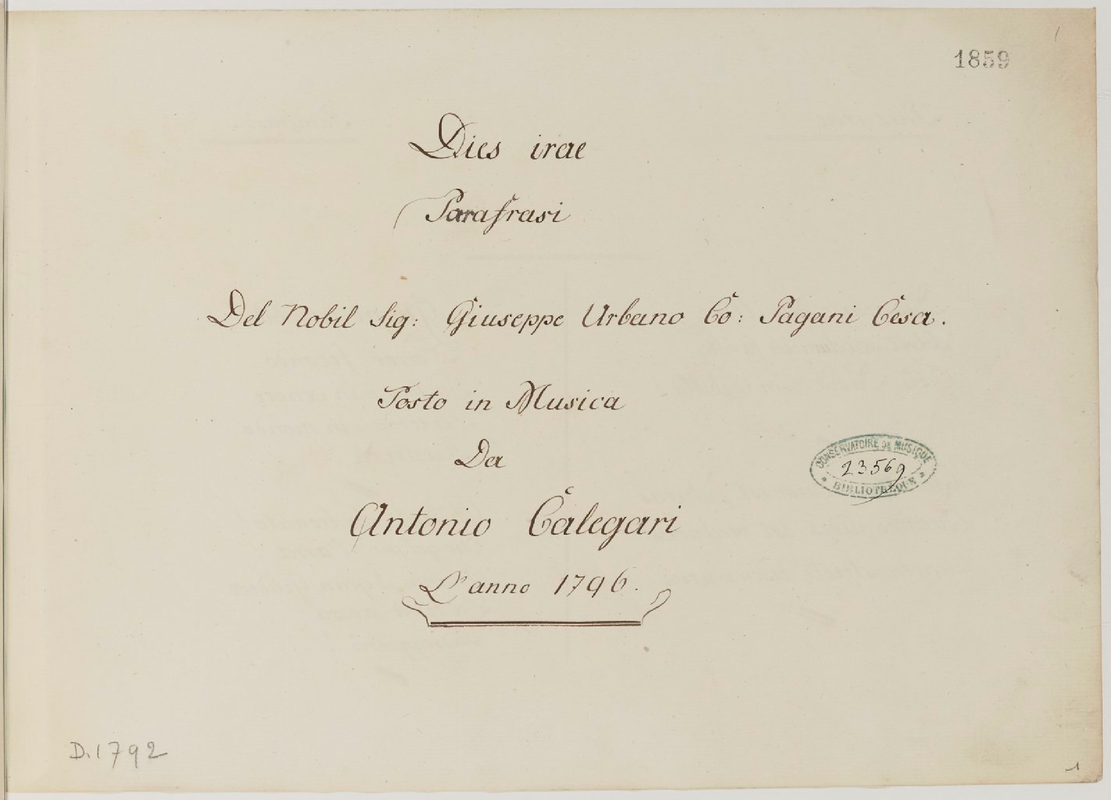 1859
Dies irae
Parafrasi
Del Nobil Sig: Giuseppe Urbano Co: Pagani Cesa.
Posto in Musica
Da
Antonio Calegari
L'anno 1796.
CONSERVATOIRE DE MUSIQUE
23569
BIBLIOTHEQUE
D.1792
1